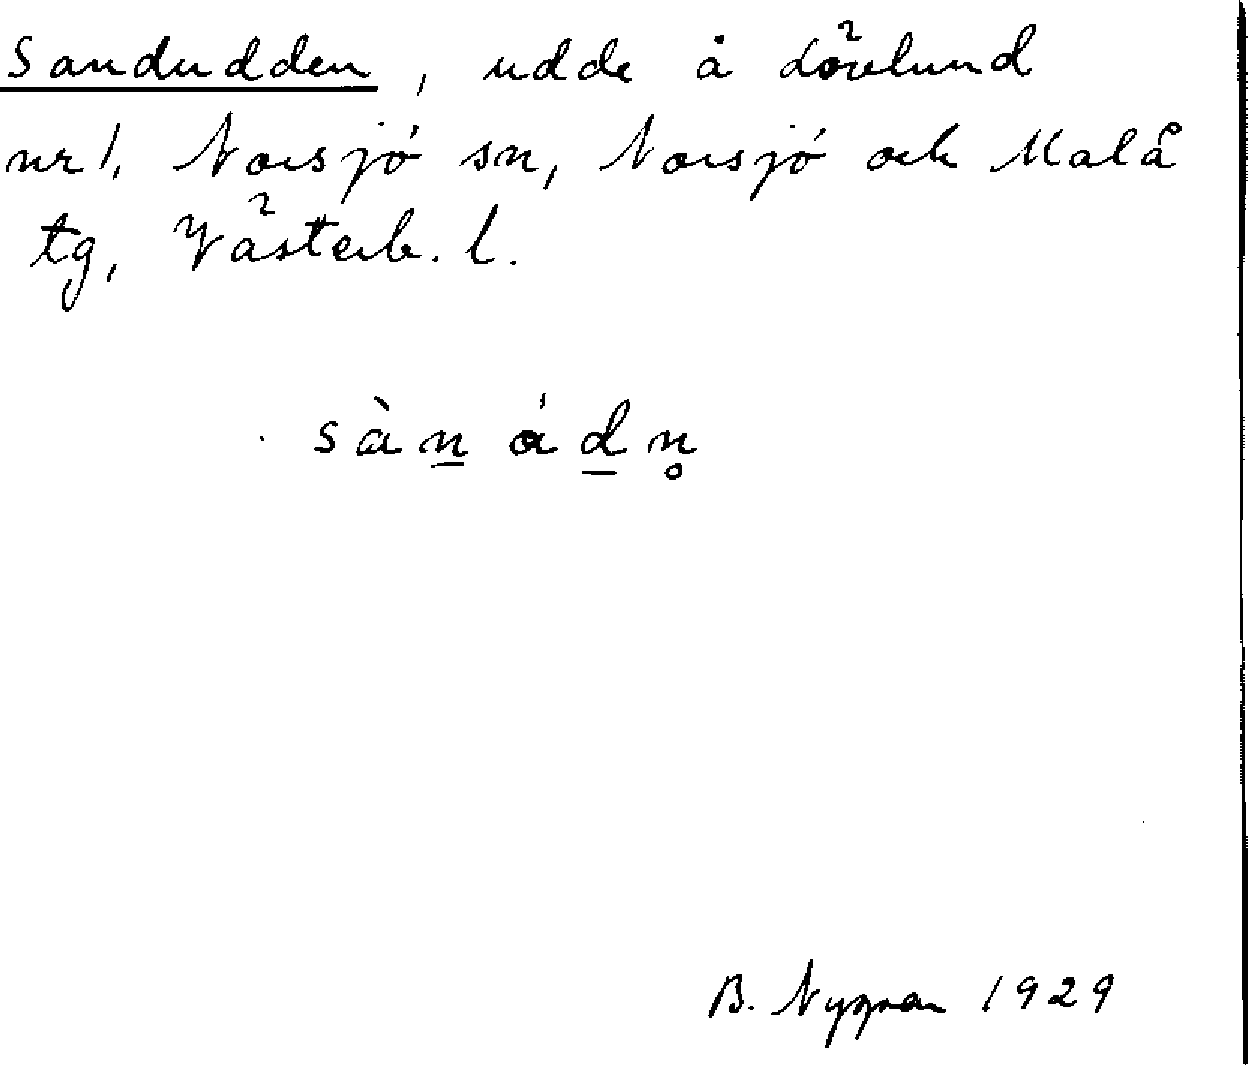 Sandudden, udde å Lövlund
nr 1, Norsjö sn, Norsjö och Malå
tg, Västerb. l.
sàn ádn̥
B. 1929